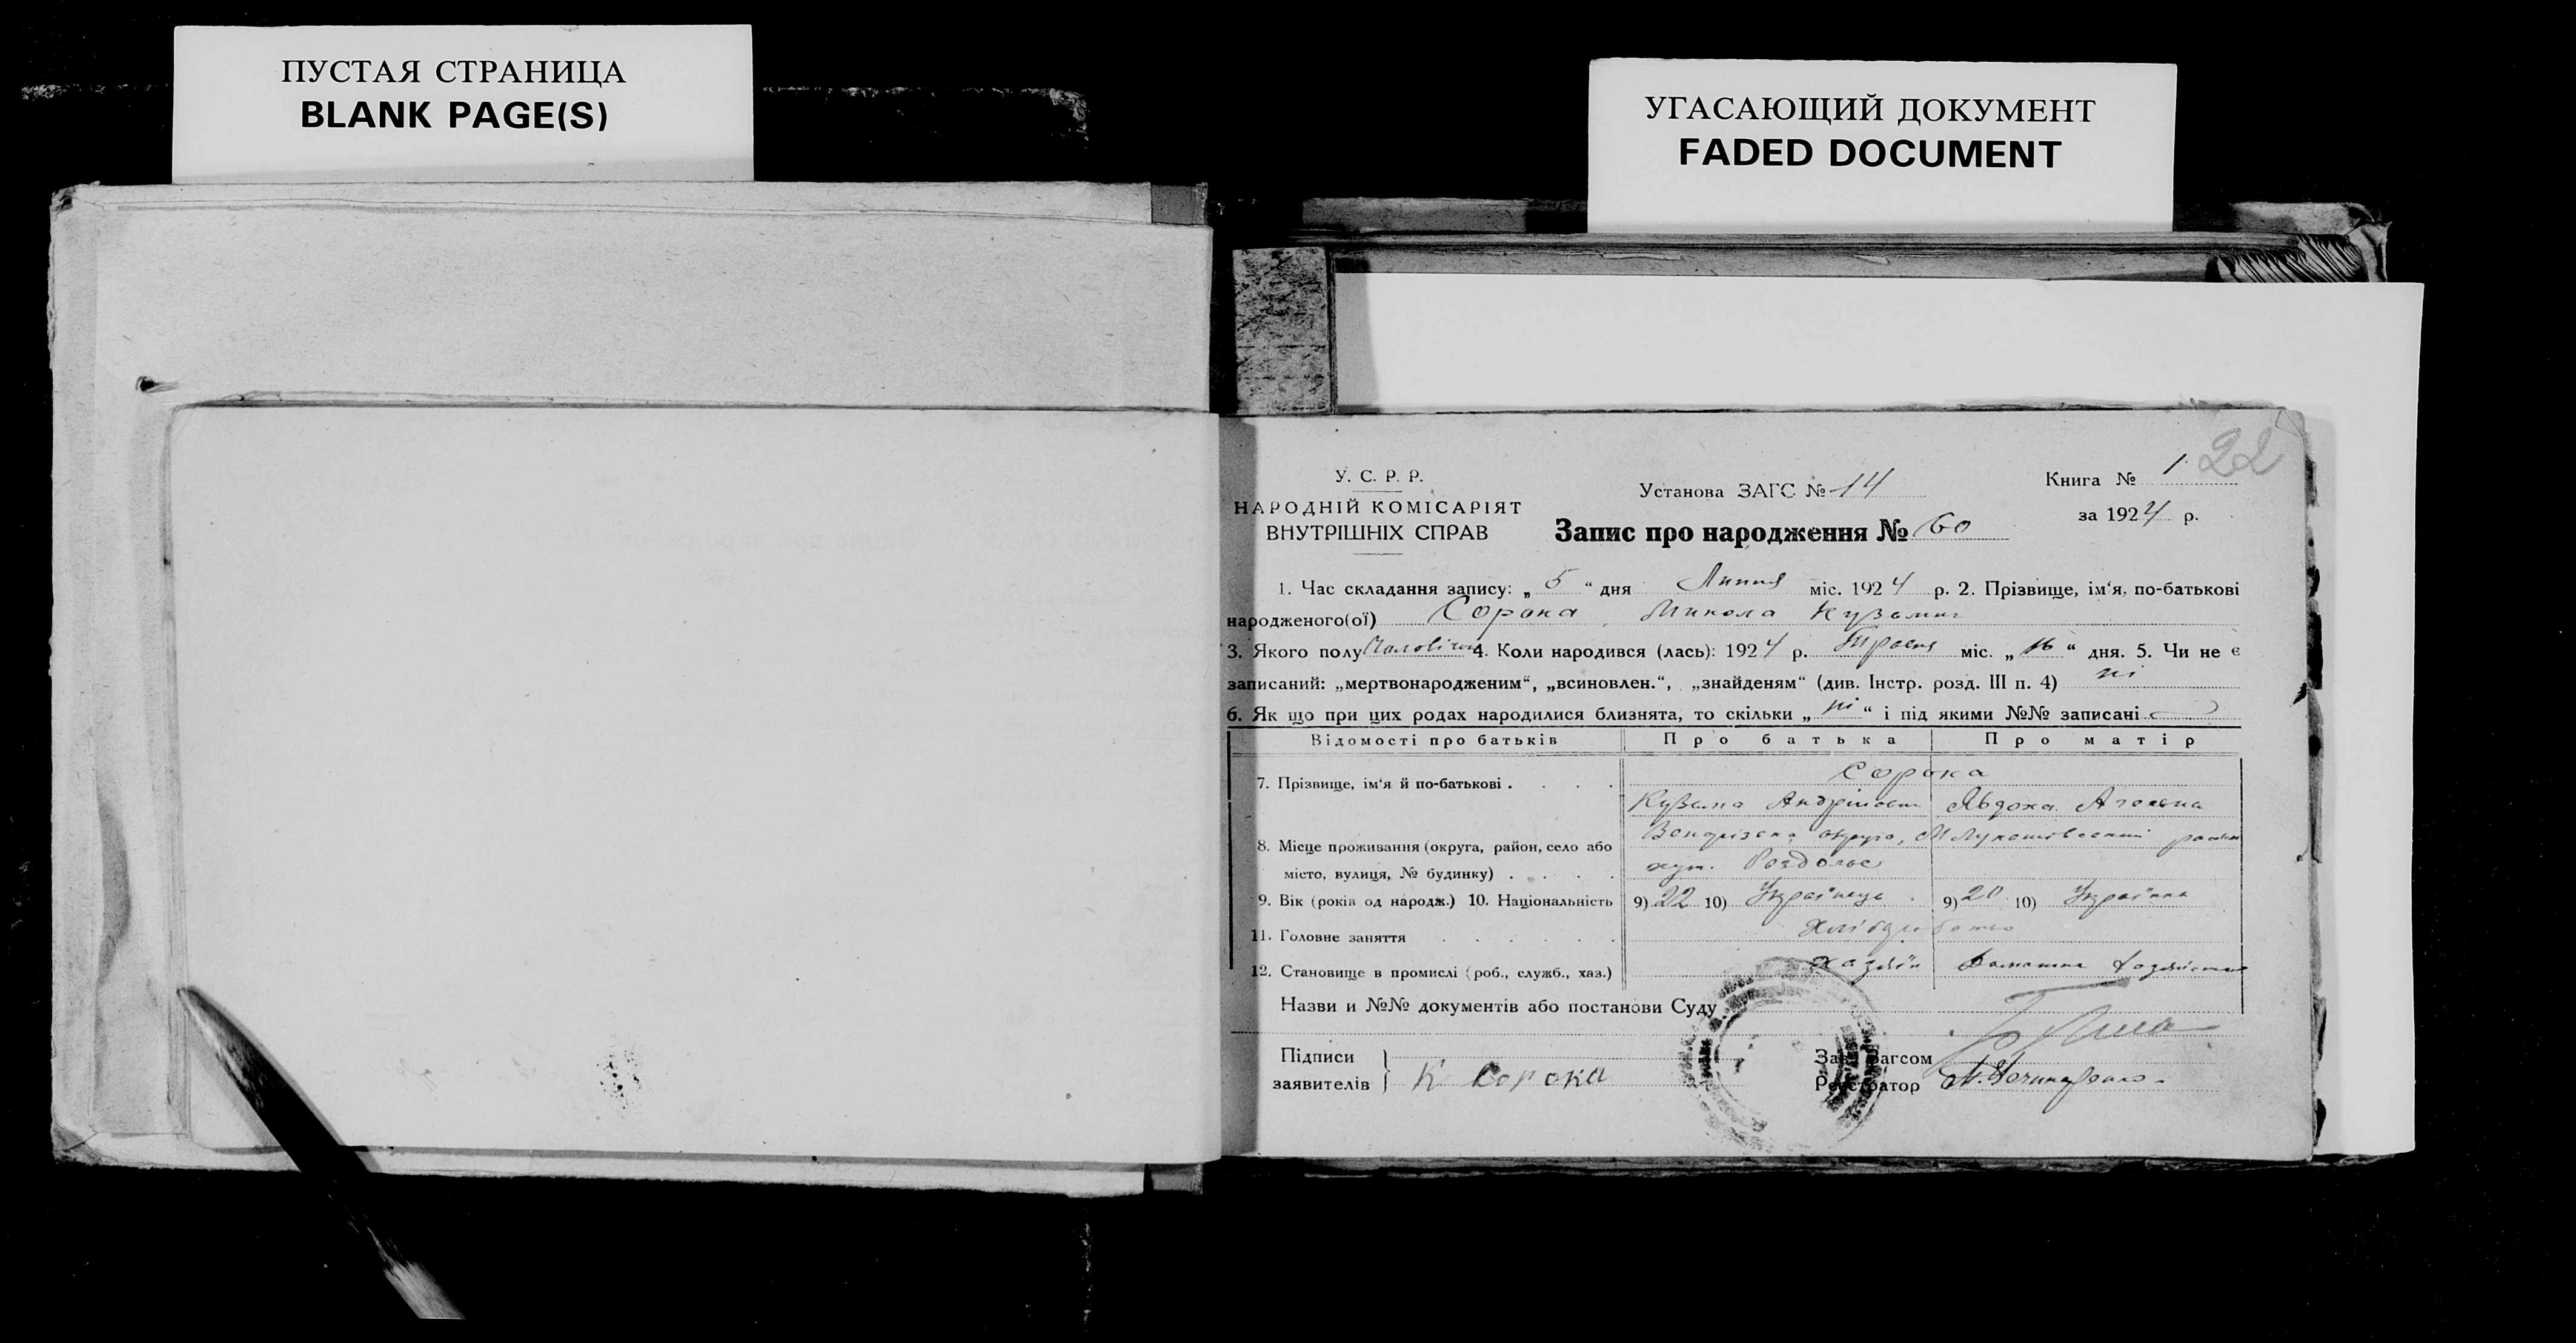 ПУСТАЯ СТРАНИЦА
BLANK PAGE(S)
УГАСАЮЩИЙ ДОКУМЕНТ
FADED DOCUMENT
22
У. С. Р. Р.
НАРОДНІЙ КОМІСАРІЯТ
ВНУТРІШНІХ СПРАВ
Установа ЗАГС № 14
Книга № 1
за 1924 р.
Запис про народження № 60
1. Час складання запису: „ 5 “ дня Липня міс. 1924 р. 2. Прізвище, ім‘я, по-батькові
народженого(ої) Сорока Микола Кузьмич
3. Якого полу 4. Коли народився (лась): 1924 р. Травня міс. „ 16 “ дня. 5. Чи не є
записаний: „мертвонародженим“, „всиновлен.“, „знайденям“ (див. Інстр. розд. III п. 4) ні
6. Як що при цих родах народилися близнята, то скільки „ ні “ і під якими №№ записані
Відомості про батьків Про батька Про матір
7. Прізвище, ім‘я й по-батькові . . . . Сорока
Кузьма Андрійович Явдоха
8. Місце проживання (округа, район, село або округа,
місто, вулиця, № будинку) . . . . хут. Роздольє
9. Вік (років од народж.) 10. Національність 9) 22 10) Українець 9) 20 10) Українка
11. Головне заняття . . . . . . Хліборобство
12. Становище в промислі (роб., служб., хаз.) хазяїн
Назви и №№ документів або постанови Суду
Підписи
заявителів К Сорока
Зав. Загсом
Реєстратор